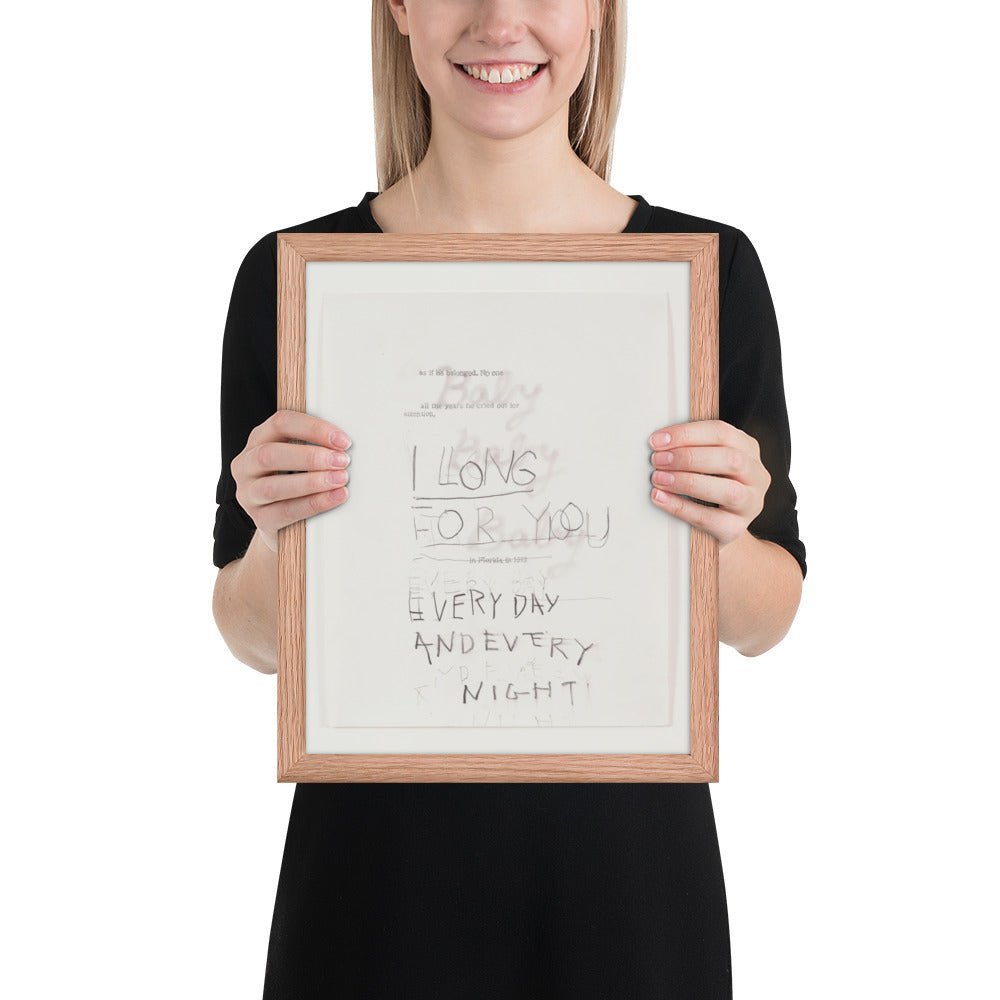 as if he belonged. No one
Baby
all the years he cried out for
attention.
Baby
I LLONG
FOR YOU
Baby
in Florida in 1972
EVERY DAY
EVERY DAY
AND EVERY
NIGHT